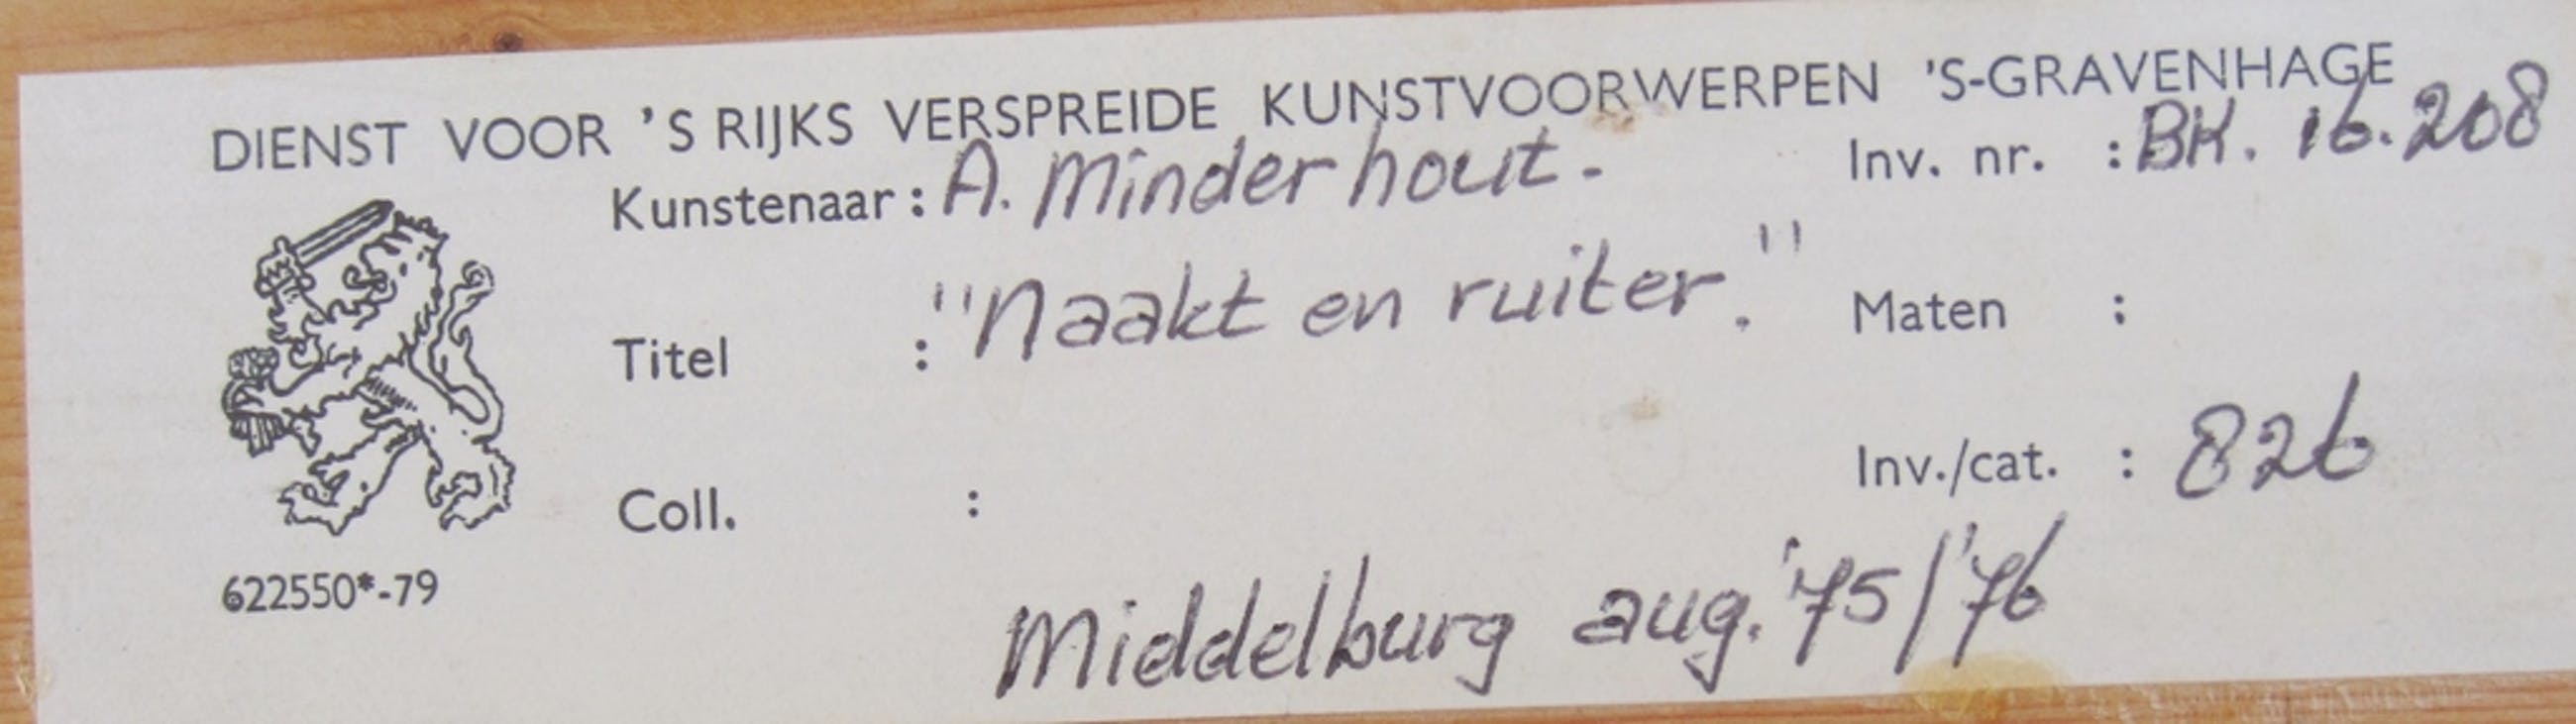 DIENST VOOR 'S RIJKS VERSPREIDE KUNSTVOORWERPEN 'S-GRAVENHAGE
Kunstenaar : A. Minderhout. Inv. nr. : BK. 16.208
Titel : "Naakt en ruiter." Maten :
Coll. : Inv./cat. : 826
622550*-79
Middelburg aug. '75/'76